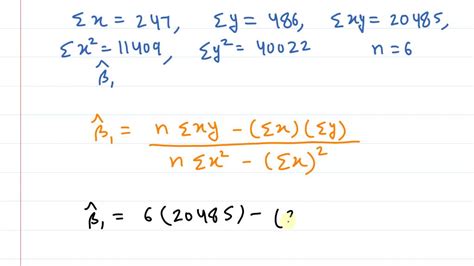 Σx = 247, Σy = 486, Σxy = 20485,
Σx² = 11409, Σy² = 40022 n = 6
β̂₁
β̂₁ = n Σxy − (Σx)(Σy) / n Σx² − (Σx)²
β̂₁ = 6(20485) − (